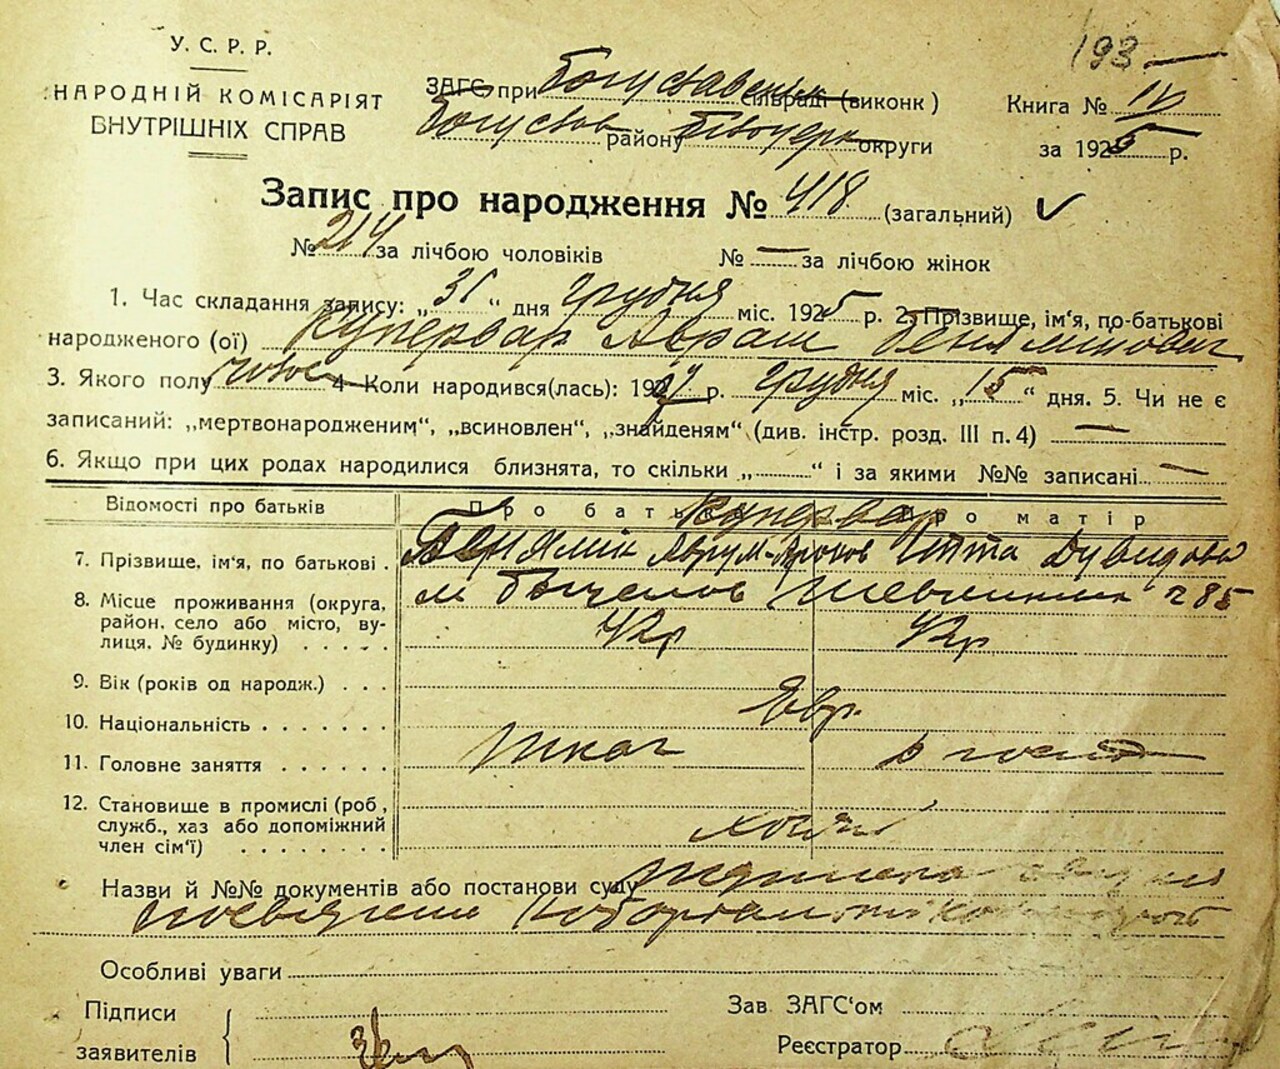 193
У. С. Р. Р.
НАРОДНІЙ КОМІСАРІЯТ
ВНУТРІШНІХ СПРАВ
ЗАГС при Богуславськ сільраді (виконк)
Богуслав району Білоцерк округи
Книга № IV
за 1925 р.
Запис про народження № 418 (загальний)
№ 214 за лічбою чоловіків № — за лічбою жінок
1. Час складання запису: „31“ дня грудня міс. 1925 р. 2. Прізвище, ім‘я, по-батькові
народженого (ої) Купервар Аврам Бениямінович
3. Якого полу чолов 4. Коли народився(лась): 192 р. грудня міс. „15“ дня. 5. Чи не є
записаний: „мертвонародженим“, „всиновлен“, „знайденям“ (див. інстр. розд. III п. 4) —
6. Якщо при цих родах народилися близнята, то скільки „......“ і за якими №№ записані —
Відомості про батьків Про батька Про матір
Купервар
7. Прізвище, ім‘я, по батькові . Бенямін Аврум- Ітта Дувидова
8. Місце проживання (округа, м 285
район, село або місто, ву-
лиця, № будинку) . . . . . Укр Укр
9. Вік (років од народж.) . . .
10. Національність . . . . . . . Евр.
11. Головне заняття . . . . . . ткач
12. Становище в промислі (роб.,
служб., хаз або допоміжний
член сім‘ї) . . . . . . . .
Назви й №№ документів або постанови суду
посвідчена
Особливі уваги
Підписи Зав ЗАГС‘ом
заявителів Реєстратор